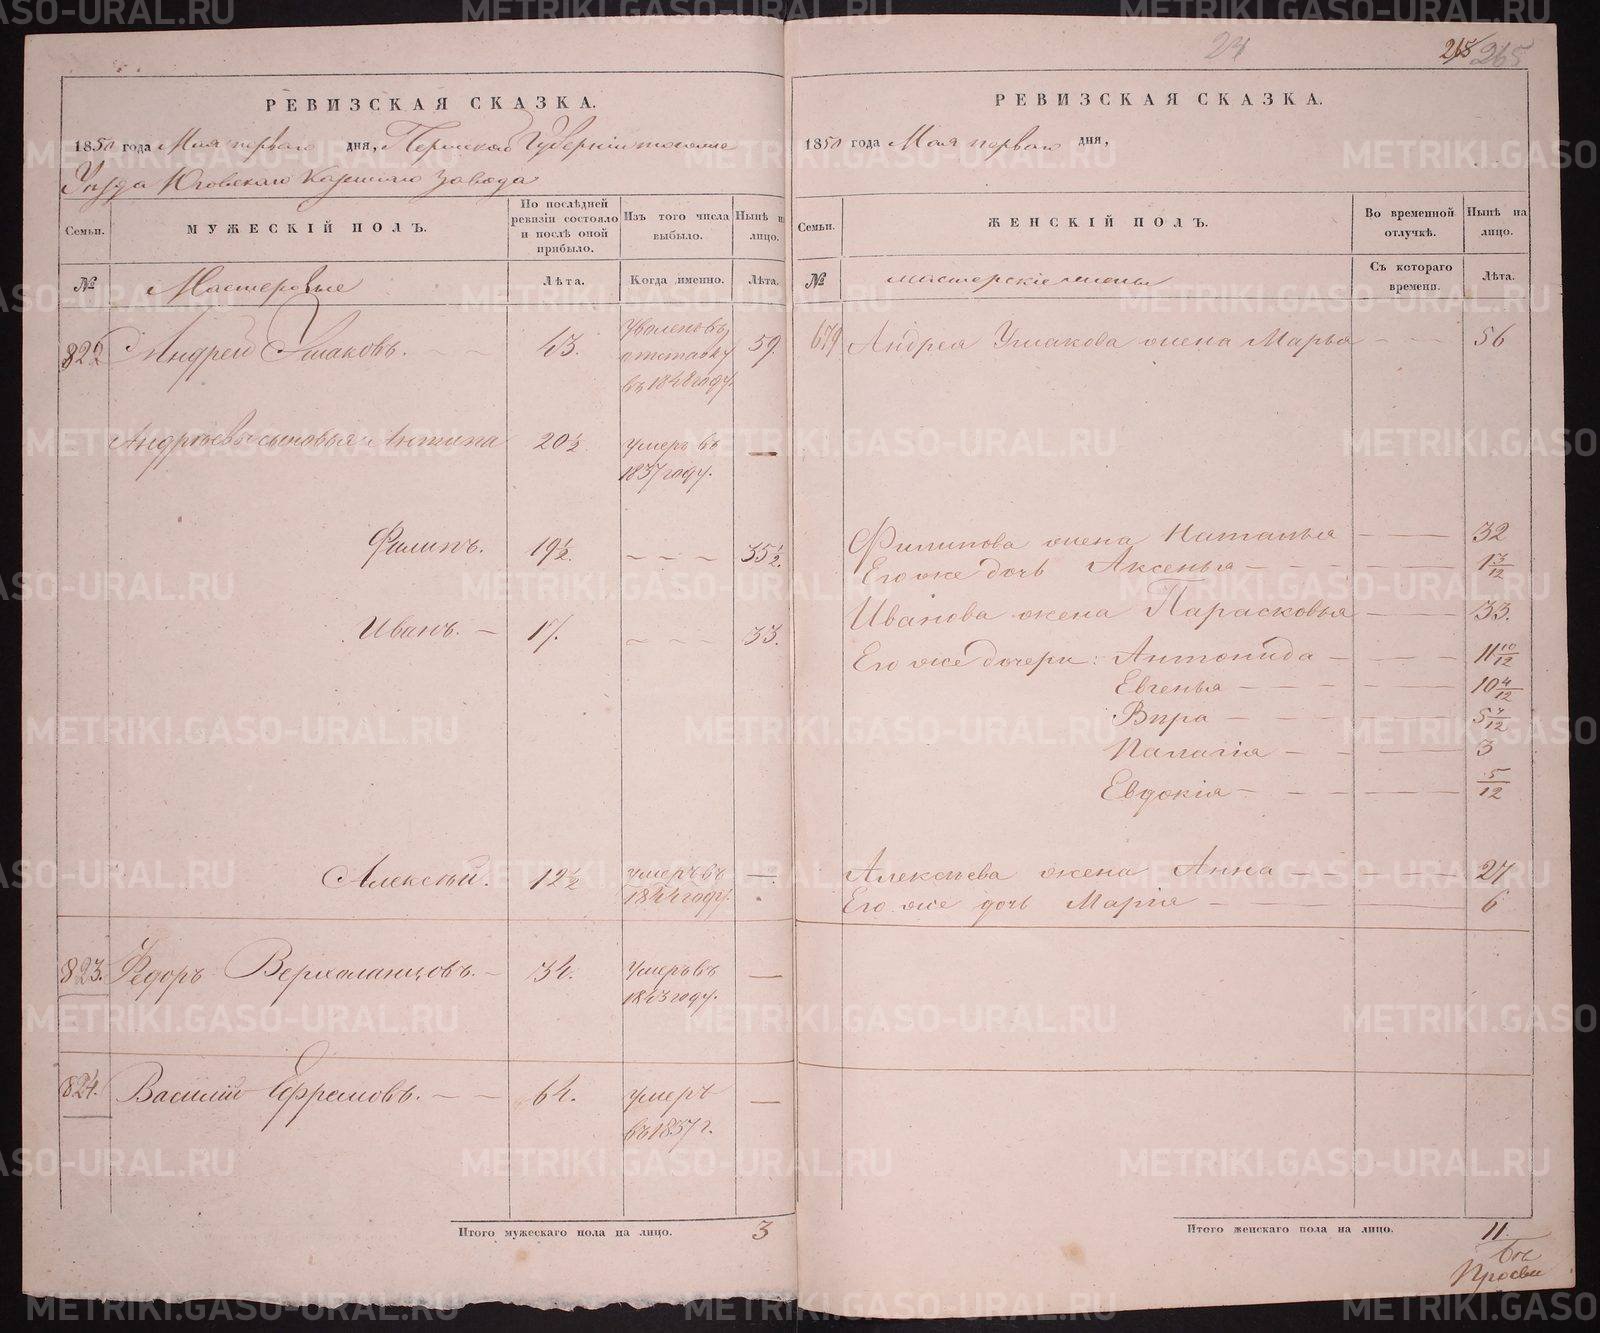 24
265 265
РЕВИЗСКАЯ СКАЗКА.
1850 года Мая перваго дня, Пермской Губерніи тогоже
Уезда Юговскаго Казеннаго завода
Семьи.
МУЖЕСКІЙ ПОЛЪ.
По послѣдней ревизіи состояло и послѣ оной прибыло.
Изъ того числа выбыло.
Нынѣ на лицо.
№
Мастеровые
Лѣта.
Когда именно.
Лѣта.
822 Андрей Ушаковъ. 43. Уволенъ въ отставку въ 1848 году. 59.
Андреевы сыновья: Антипа 20½ умеръ въ 1837 году. —
Филипъ. 19½ — — — 35½.
Иванъ. — 17. — — — 33.
Алексѣй. 12½ умеръ въ 1844 году. —
823. Федоръ Верхоланцовъ. — 34. умеръ въ 1843 году. —
824. Василій Ефремовъ. — — 64. умеръ въ 1837 г. —
Итого мужескаго пола на лицо. 3
РЕВИЗСКАЯ СКАЗКА.
1850 года Мая перваго дня,
Семьи.
ЖЕНСКІЙ ПОЛЪ.
Во временной отлучкѣ.
Нынѣ на лицо.
№
мастерскіе жены
Съ котораго времени.
Лѣта.
679 Андрея Ушакова жена Марья — — 56
Филипова жена Наталья — — — 32
Его же дочь Аксенья — — — 1 3/12
Иванова жена Парасковья — — 33.
Его же дочери: Антонида — — — 11 10/12
Евгенья — — — 10 4/12
Вѣра — — — 5 7/12
Палагія — — — 3
Евдокія — — — 5/12
Алексѣева жена Анна — — — 27
Его же дочь Марія — — — 6
Итого женскаго пола на лицо. 11.